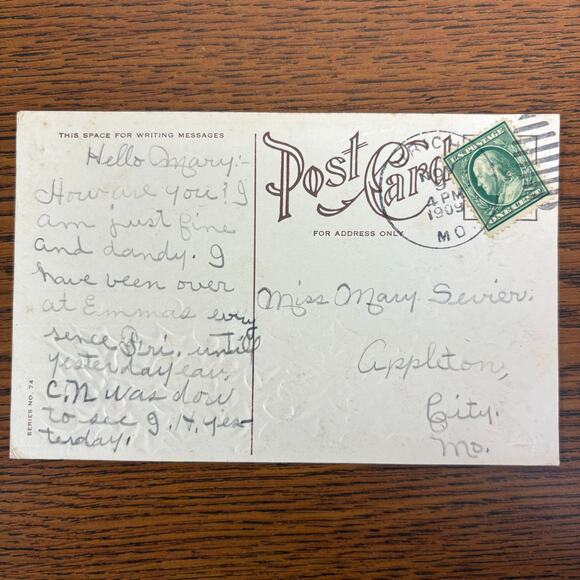 THIS SPACE FOR WRITING MESSAGES
Hello Mary:-
How are you? I
am just fine
and dandy. I
have been over
at Emmas every
sence Fri. until
yesterday eav.
C.N was dow
to see J. H. yes-
terday.
SERIES NO. 74
Post Card
FOR ADDRESS ONLY
4 PM
1909
MO.
U.S. POSTAGE
ONE CENT
Miss Mary Sevier.
Appleton,
City.
Mo.